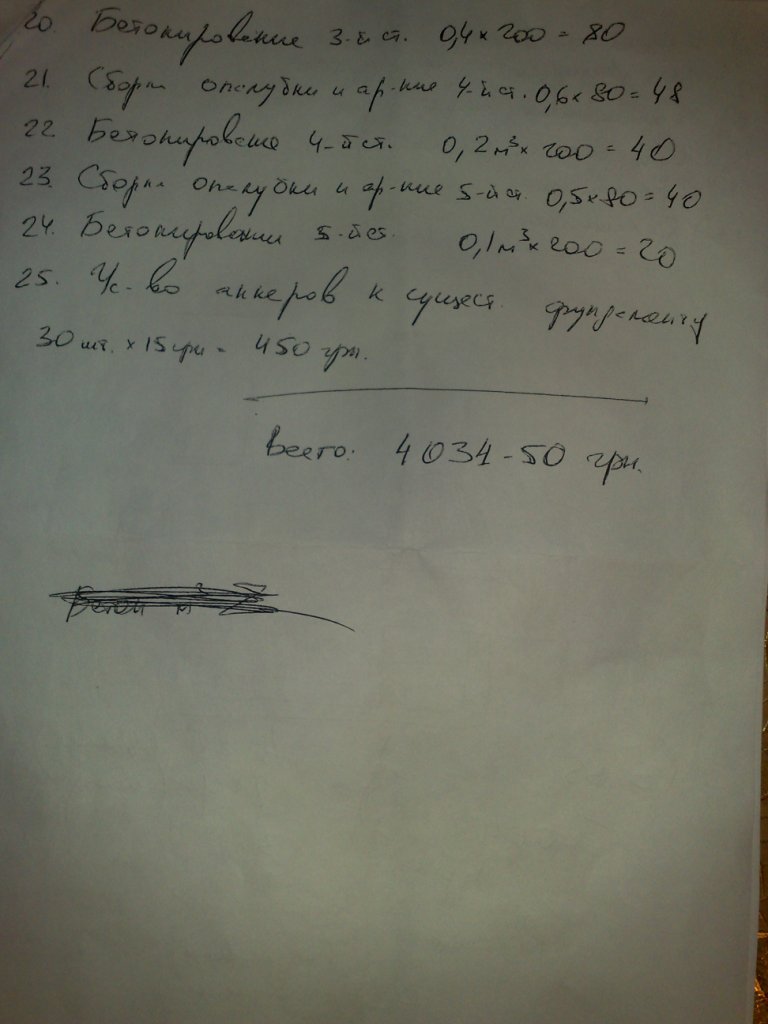 20. Бетонирование 3-й ст. 0,4 x 200 = 80
21. Сборка опалубки и ар-ние 4-й ст. 0,6 x 80 = 48
22. Бетонирование 4-й ст. 0,2 м³ x 200 = 40
23. Сборка опалубки и ар-ние 5-й ст. 0,5 x 80 = 40
24. Бетонировании 5-й ст. 0,1 м³ x 200 = 20
25. Ус-во анкеров к сущест. фундаменту
30 шт. x 15 грн = 450 грн.
Всего: 4034-50 грн.